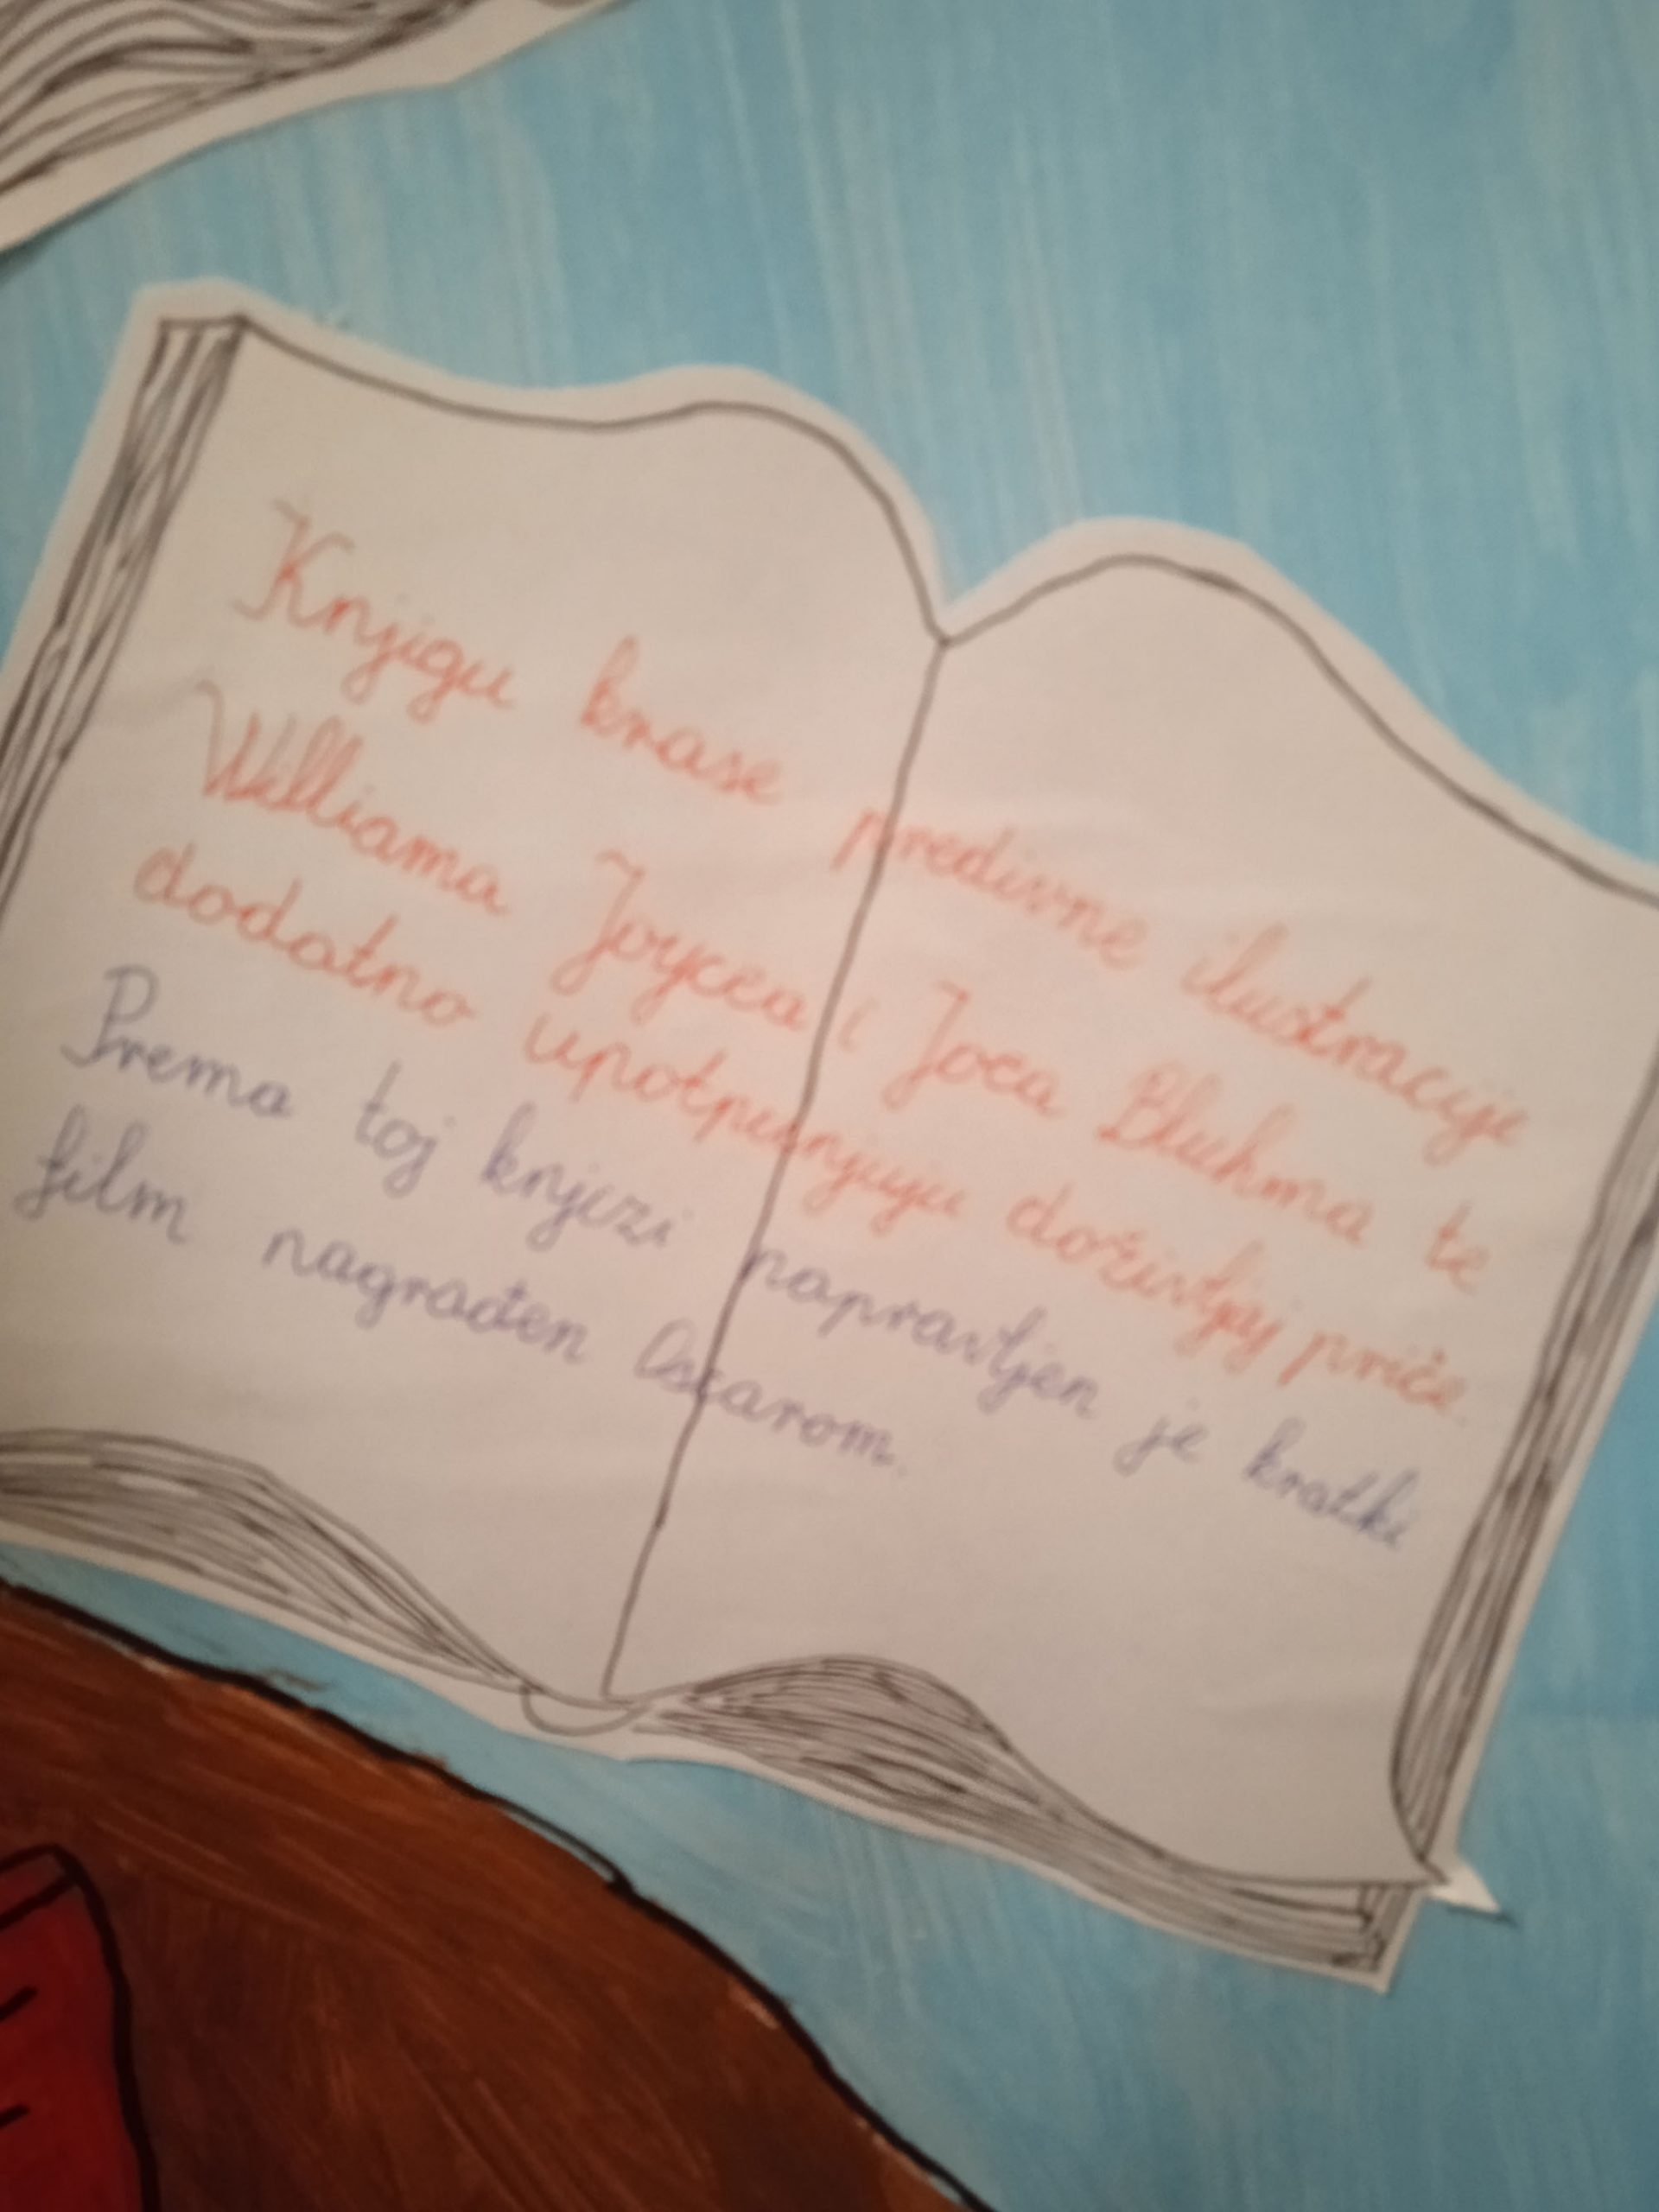 Knjigu krase predivne ilustracije
Williama Joycea i Joea Bluhma te
dodatno upotpunjuju doživljaj priče.
Prema toj knjizi napravljen je kratki
film nagrađen Oscarom.